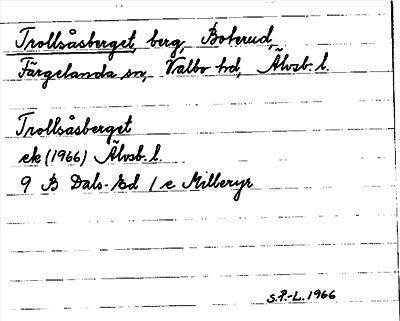 Trollsåsberget, berg, Bokerud,
Färgelanda sn, Valbo hd, Älvsb. l.
Trollsåsberget
ek (1966) Älvsb. l.
9 B Dals-Ed 1 e Milleryr
S.P.-L. 1966